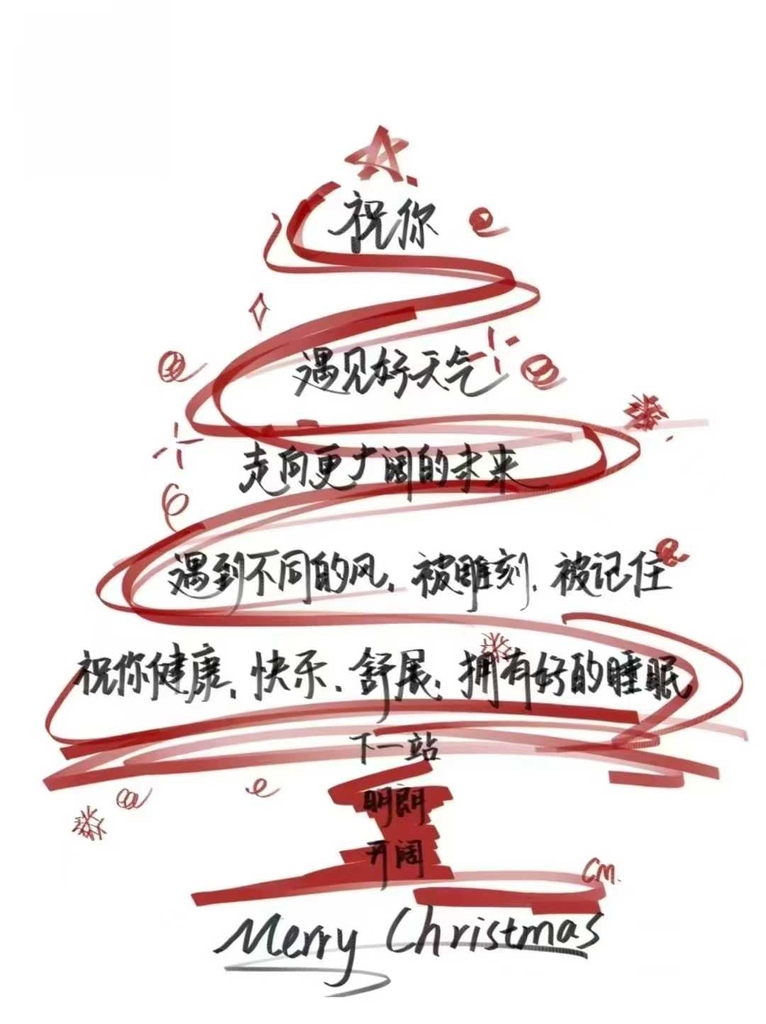 祝你
遇见好天气
走向更广阔的未来
遇到不同的风,被雕刻,被记住
祝你健康、快乐、舒展,拥有好的睡眠
下一站
明朗
开阔
CM.
Merry Christmas